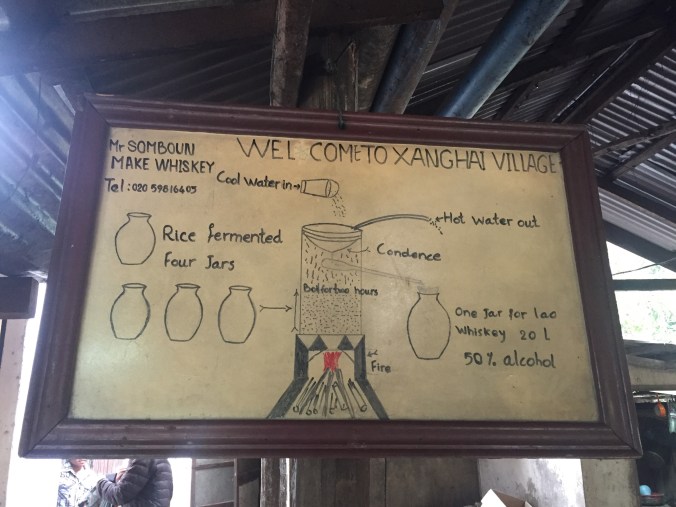 Mr SOMBOUN
MAKE WHISKEY
Tel: 020 59816405
WELCOME TO XANGHAI VILLAGE
Cool Water in
Hot Water out
Rice fermented
Four Jars
Condence
Boil for two hours
One Jar for lao
Whiskey 20 L
50% alcohol
Fire